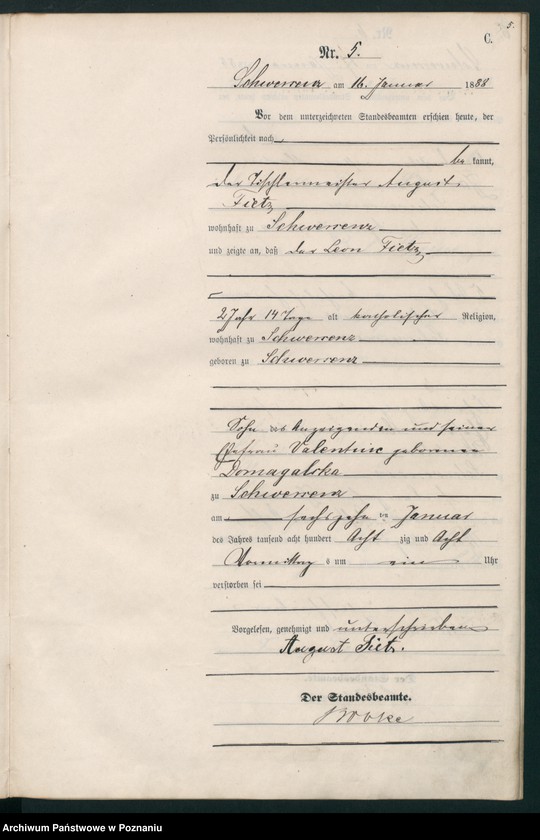 5.
C.
Nr. 5.
Schwersenz am 16. Januar 1888
Vor dem unterzeichneten Standesbeamten erschien heute, der
Persönlichkeit nach
be kannt,
der Tischlermeister August
Fietz
wohnhaft zu Schwersenz
und zeigte an, daß der Leon Fietz
2 Jahr 14 Tage alt katholischer Religion,
wohnhaft zu Schwersenz
geboren zu Schwersenz
Sohn des Anzeigenden und seiner
Ehefrau Valentine geborenen
Domagalska
zu Schwersenz
am sechszehn ten Januar
des Jahres tausend acht hundert Acht zig und Acht
Vormittag s um ein Uhr
verstorben sei
Vorgelesen, genehmigt und unterschrieben
August Fietz.
Der Standesbeamte.
Archiwum Państwowe w Poznaniu